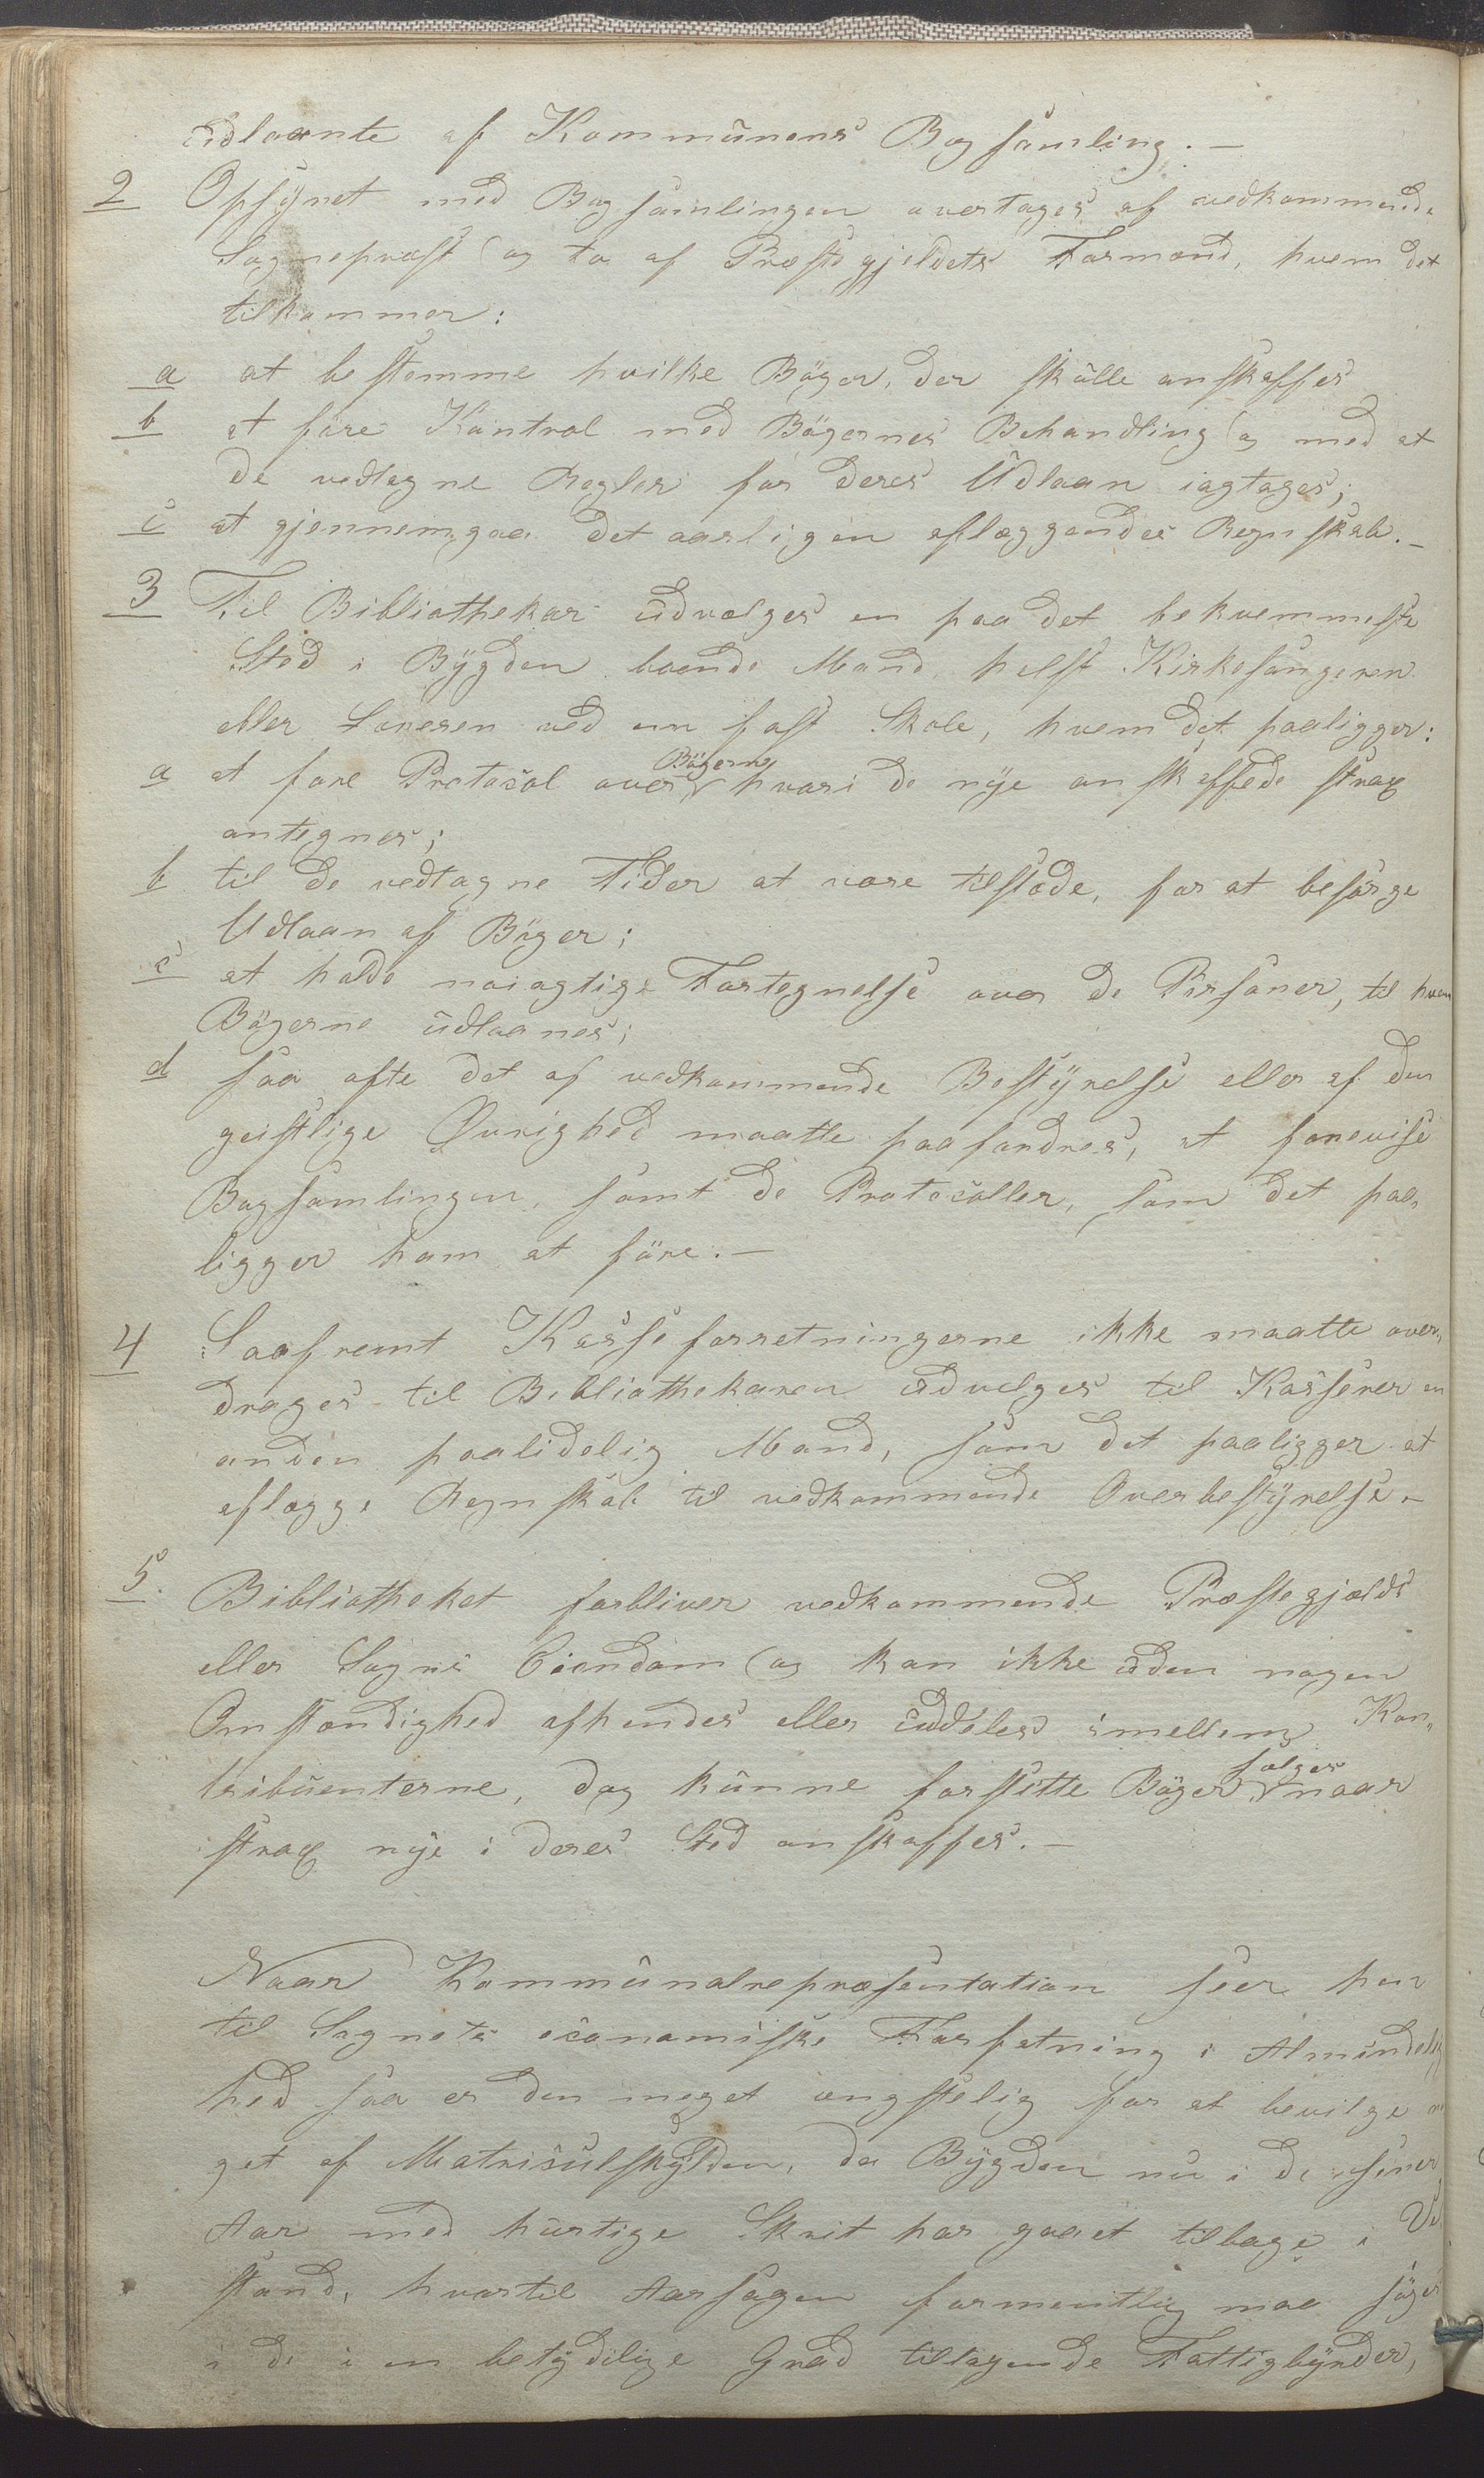 udlaante af Kommunens Bogsamling. —
2 Opsynet med Bogsamlingen overtages af vedkommende
Sognepræst og to af Præstegjeldets Formænd, hvem det
tilkommer:
a at bestemme hvilke Bøger, der skulle anskaffes
b at føre Kontrol med Bøgernes Behandling og med at
de vedtagne Regler for deres Udlaan iagtages;
c at gjennemgaa det aarligen aflæggendes Regnskab. —
3 Til Bibliothekar udvælges en paa det bekvemmeste
Sted i Bygden boende Mand, helst Kirkesangeren
eller Læreren ved en fast Skole, hvem det paaligger:
a at føre Protocol over Bøgerne hvori de nye anskaffede strax
antegnes;
b til de vedtagne Tider at være tilstæde, for at besørge
Udlaan af Bøger;
c at holde noiagtige Fortegnelse over de Personer, til hvem
Bøgerne udlaanes;
d saa ofte det af vedkommende Bestyrelse eller af den
geistlige Øvrighed maatte paafordres, at forevise
Bogsamlingen, samt de Protocoller, som det paa„
ligger ham at føre. —
4 Saafremt Kasseforretningerne ikke maatte over„
drages til Bibliothekaren udvælges til Kasserer en
anden paalidelig Mand, som det paaligger at
aflægge Regnskab til vedkommende Overbestyrelse. —
5. Bibliotheket forbliver vedkommende Præstegjælds
eller Sogns Eiendom og kan ikke uden nogen
Omstændighed afhendes eller uddeles imellem Kon„
tribuenterne, dog kunne forslitte Bøger sælges naar
strax nye i deres Sted anskaffes. —
Naar Kommunalrepræsentation seer hen
til Sognets oconomiske Forfatning i Almindelig
hed saa er den meget ængstelig for at bevilge no
get af Matriculskylden, da Bygden nu i de senere
Aar med hurtige Skrit har gaaet tilbage i Vel
stand, hvortil Aarsagen formentlig maa søges
i de i en betydelige Grad tiltagende Fattigbyrder,